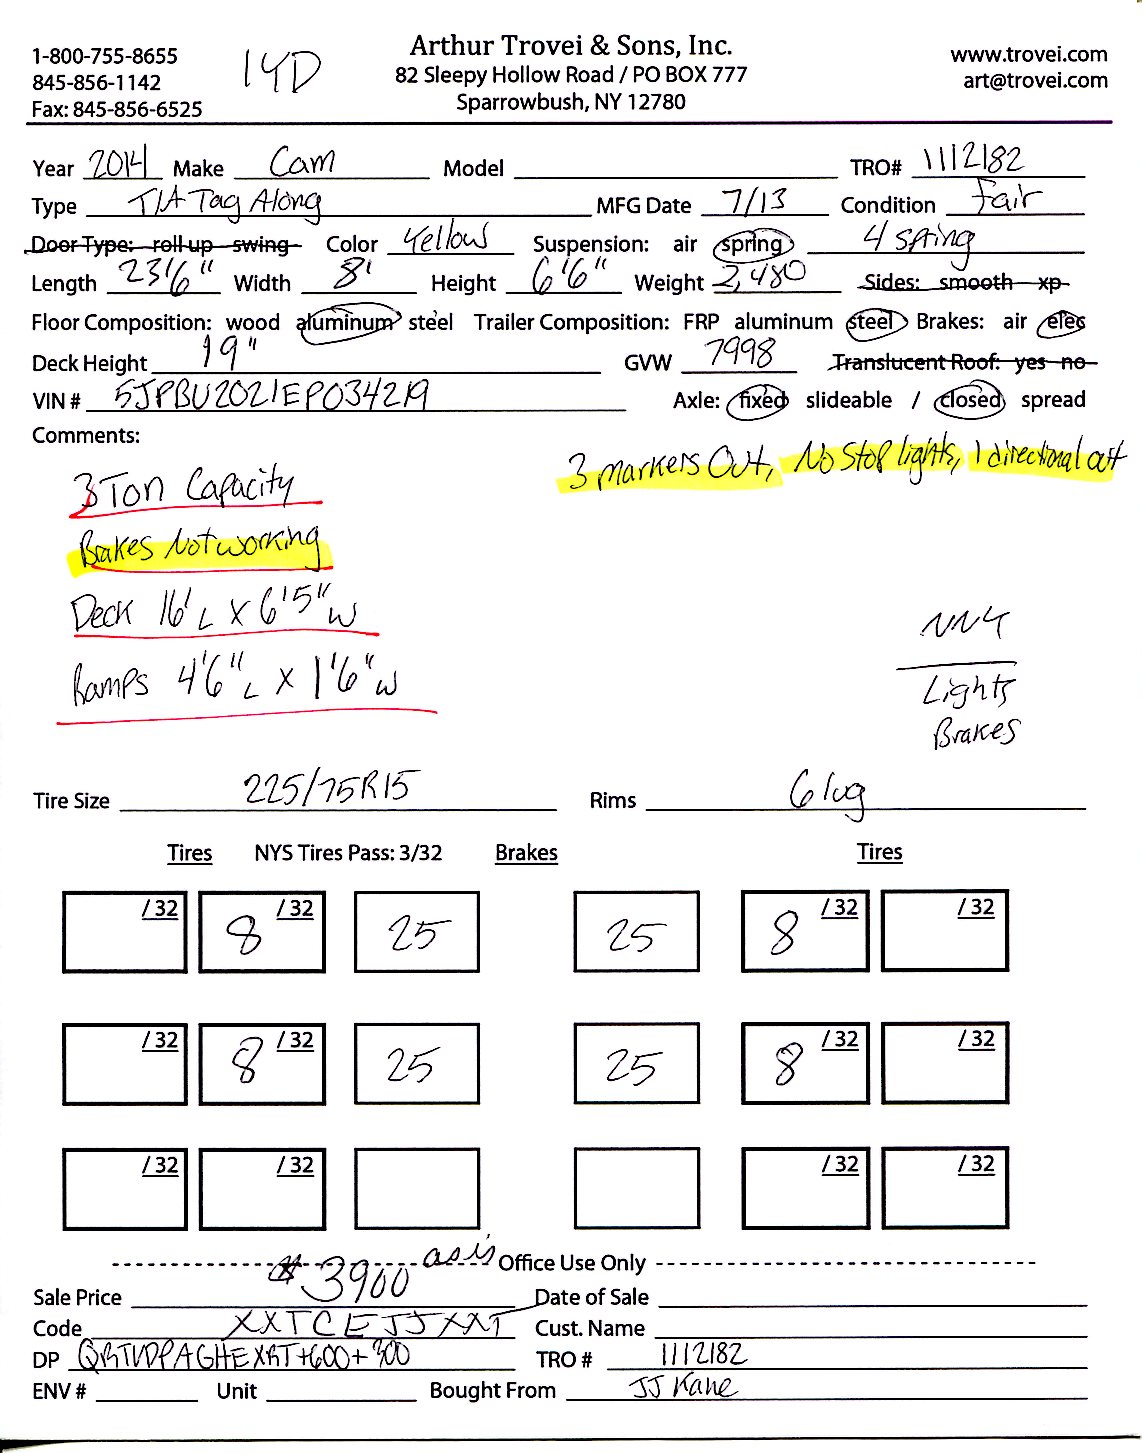 1-800-755-8655
845-856-1142
Fax: 845-856-6525
14D
Arthur Trovei & Sons, Inc.
82 Sleepy Hollow Road / PO BOX 777
Sparrowbush, NY 12780
www.trovei.com
art@trovei.com
Year 2014 Make Cam Model TRO# 1112182
Type T/A Tag Along MFG Date 7/13 Condition fair
Door Type: roll up swing Color Yellow Suspension: air spring 4 spring
Length 23'6" Width 8' Height 6'6" Weight 2,480 Sides: smooth xp
Floor Composition: wood aluminum steel Trailer Composition: FRP aluminum steel Brakes: air elec
Deck Height 19" GVW 7998 Translucent Roof: yes no
VIN # 5JPBU2021EP034219 Axle: fixed slideable / closed spread
Comments:
3 markers Out, No Stop lights, 1 directional out
3 Ton Capacity
Brakes Not working
Deck 16' L X 6'5" W
Ramps 4'6" L X 1'6" W
NNY
Lights
Brakes
Tire Size 225/75R15 Rims 6 lug
Tires NYS Tires Pass: 3/32 Brakes Tires
/32 8 /32 25 25 8 /32 /32
/32 8 /32 25 25 8 /32 /32
/32 /32 /32 /32
as is Office Use Only
Sale Price $3900 Date of Sale
Code XXTCEJJXXT Cust. Name
DP QRTVDPAGHEXRT+600+300 TRO # 1112182
ENV # Unit Bought From JJ Kane